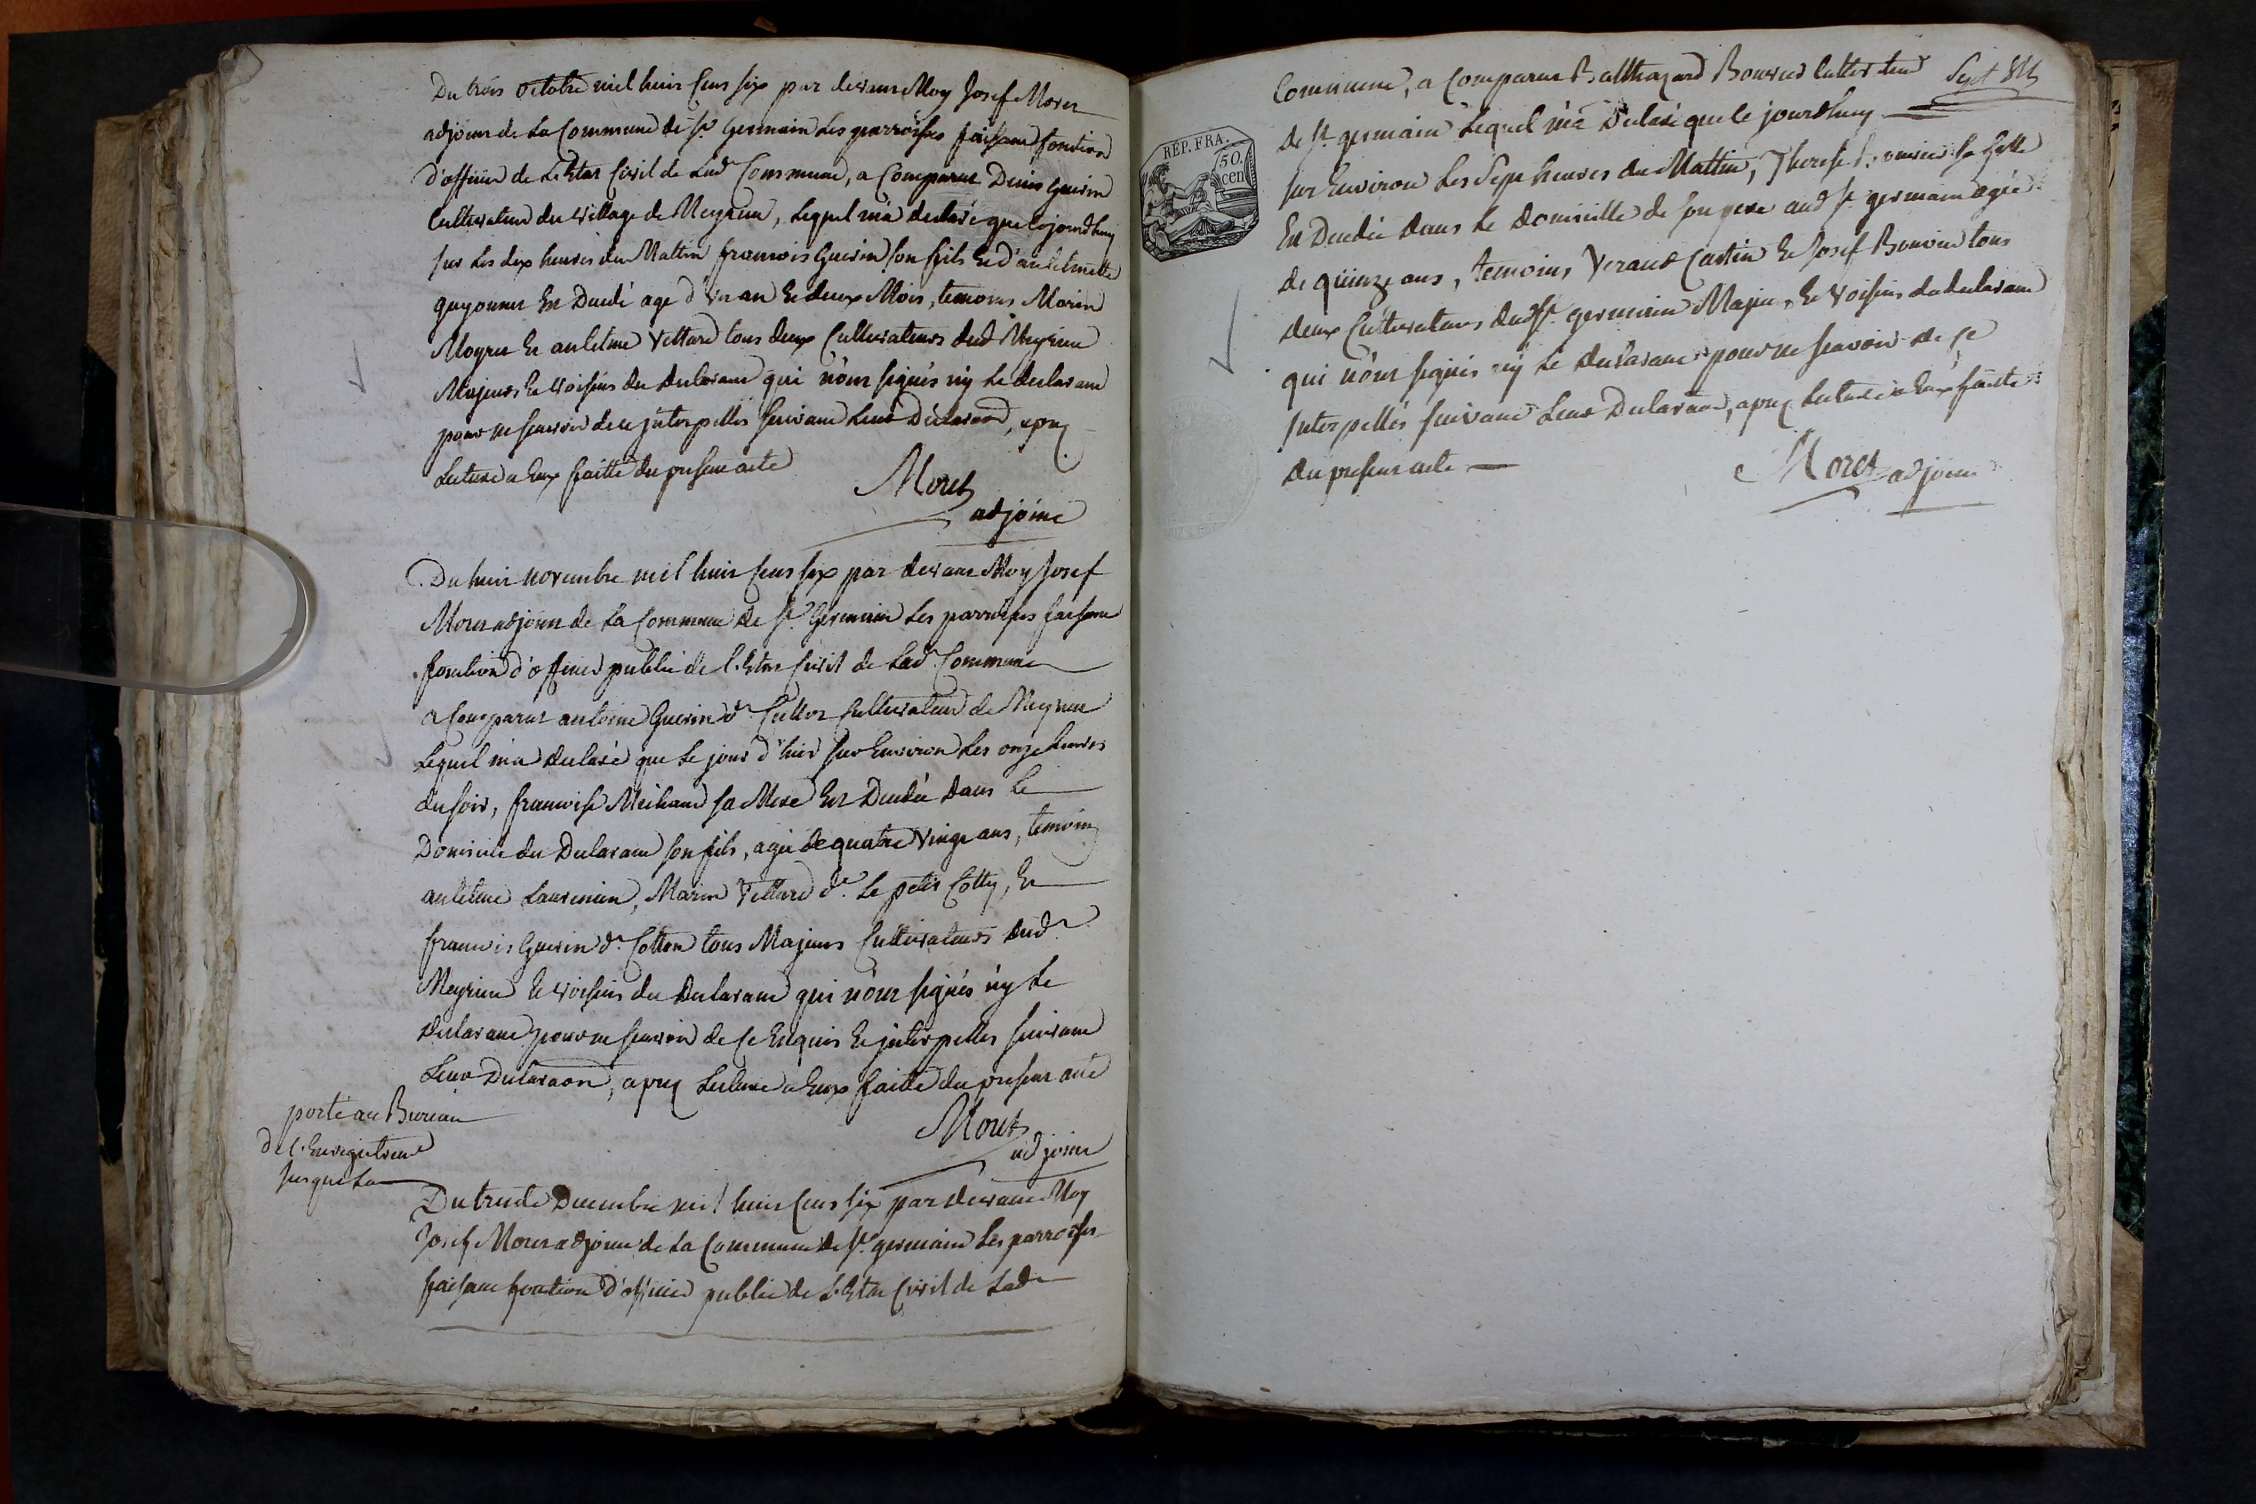 Du trois octobre mil huit cens six par devant Moy Josef Moret
adjoint de la Commune de St Germain les parroisses faisant fontion
d'officier de L'Etat Civil de Lad Commune, a Comparut Denis Guerin
Cultivateur du village de Meyrieu, Lequel m'a declaré que cejourdhuy
sur les dix heures du Mattin francois Guerin son fils Et d'anthelmette
guyonnet Est Decedé agé d'un an Et deux Mois, temoins Marin
Moyret Et anthelme Vettard tous deux Cultivateurs dud Meyrieu
Majeurs Et voisins du declarant qui n'ont signés ny Le declarant
pour ne scavoir de ce interpellés suivant Leur Declaraon, apres
Lecture a Eux faitte du present acte
Moret
adjoint
Du huit novembre mil huit Cens six par devant Moy Josef
Moret adjoint de la Commune de St Germain Les parroisses faisant
fonction d'officier public de l'Etat Civil de Lad Commune
a Comparut antoine Guerin dt Cultivateur de Meyrieu
Lequel m'a declaré que Le jour d'hier sur Environ Les onze heures
du soir, francoise Meihand sa Mere Est Decedée dans Le
Domicile du Declarant son fils, agée de quatre vingt ans, temoins
anthelme Laurencin, Marin Vettard dt Le petit Cotty, Et
francois Guerin dt Cotton tous Majeurs Cultivateurs dud
Meyrieu Et voisins du declarant qui n'ont signés ny Le
declarant pour ne scavoir de ce Enquis Et interpellés suivant
Leur Declaraon, apres Lecture a Eux faitte du present acte
Moret
adjoint
porté au Bureau
de l'Enregistrement
jusque La
Du trente Decembre mil huit Cens six par devant Moy
Josef Moret adjoint de La Commune de St germain Les parroisses
faisant fonction d'officier public de L'Etat Civil de Lad
Commune, a Comparut Balthazard Bouvier Cultivateur
de St germain Lequel m'a Declaré que le jourdhuy
sur Environ Les Sept heures du Mattin, Therese Bouvier sa fille
Est Decedée dans Le domicille de son pere aud St germain agée
de quinze ans, temoins Verand Castin Et Josef Bouvier tous
deux Cultivateurs dud St germain Majeurs Et voisins du declarant
qui n'ont signés ny Le declarant pour ne scavoir de ce
interpellés suivant Leur Declaraon, apres Lecture a Eux faitte
du present acte
Moret adjoint
REP. FRA.
50.
cen